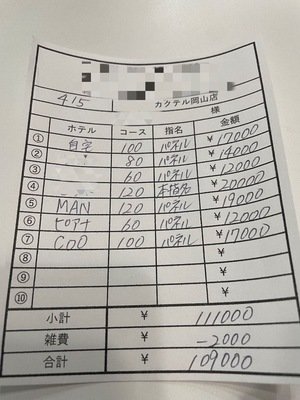 4/5 カクテル岡山店
様
ホテル コース 指名 金額
① 自宅 100 パネル ¥17000
② 80 パネル ¥14000
③ 60 パネル ¥12000
④ 120 本指名 ¥20000
⑤ MAN 120 パネル ¥19000
⑥ ピアナ 60 パネル ¥12000
⑦ 100 パネル ¥17000
⑧ ¥
⑨ ¥
⑩ ¥
小計 ¥ 111000
雑費 ¥ -2000
合計 ¥ 109000